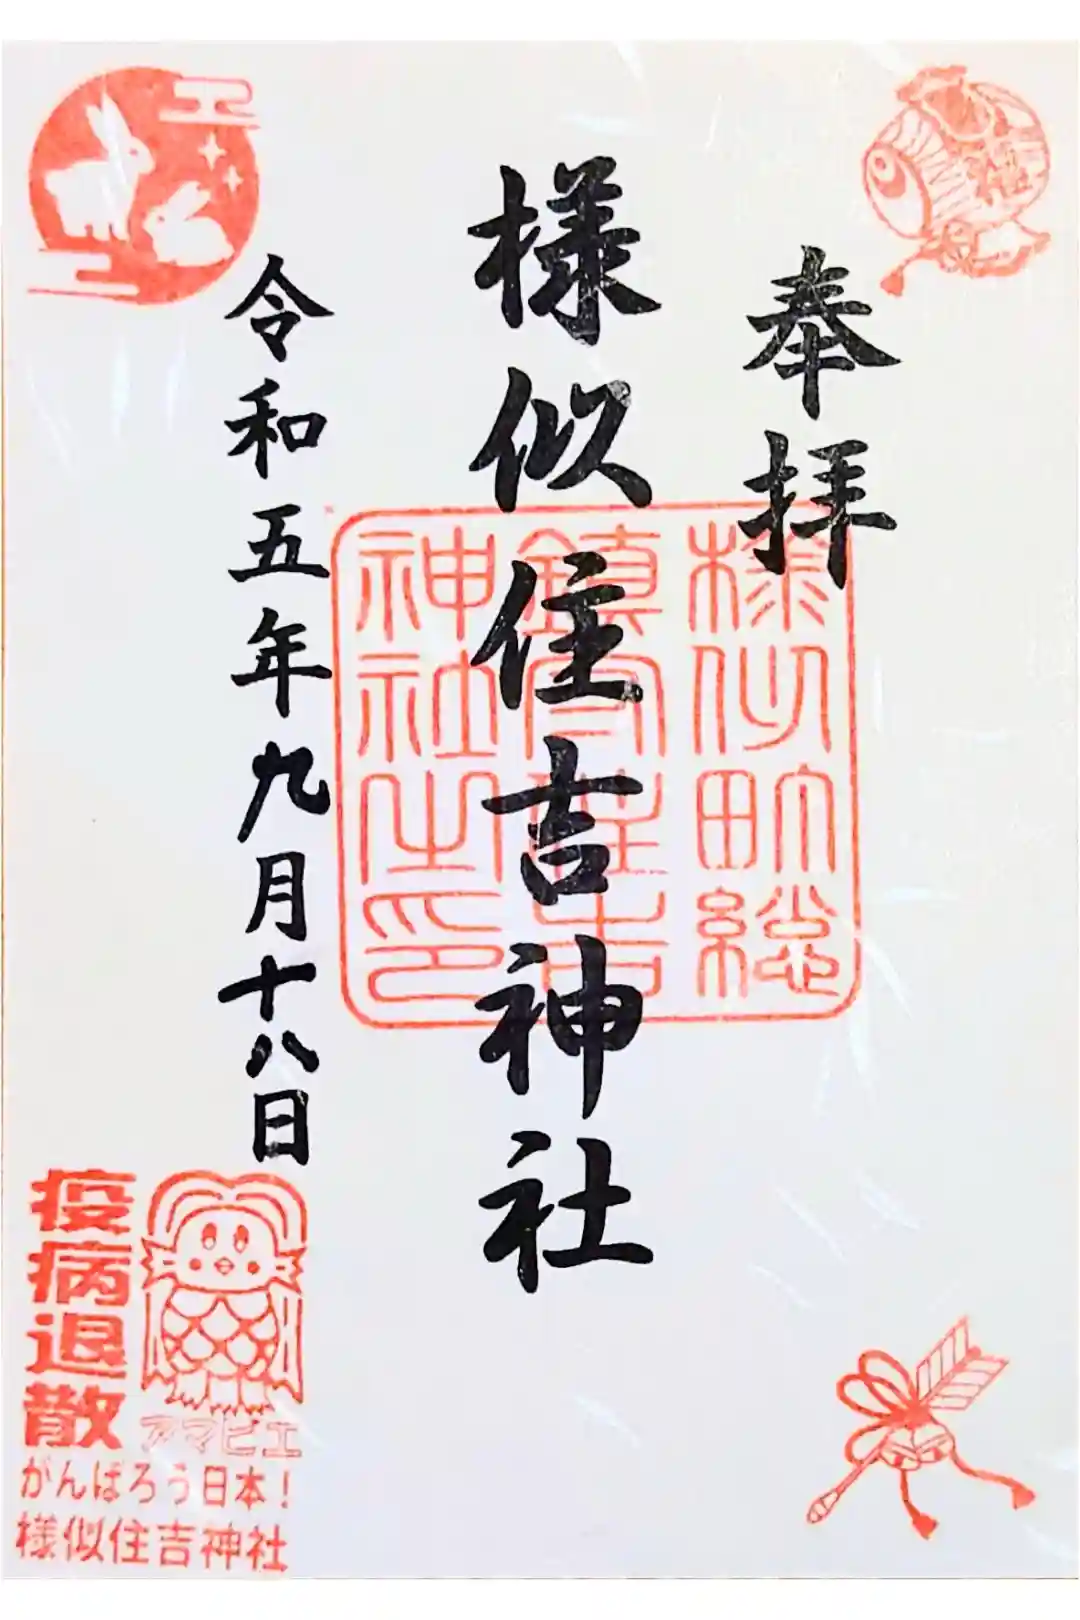 奉拝
様似住吉神社
令和五年九月十八日
様似町総
鎮守住吉
神社之印
疫病退散
アマビエ
がんばろう日本!
様似住吉神社